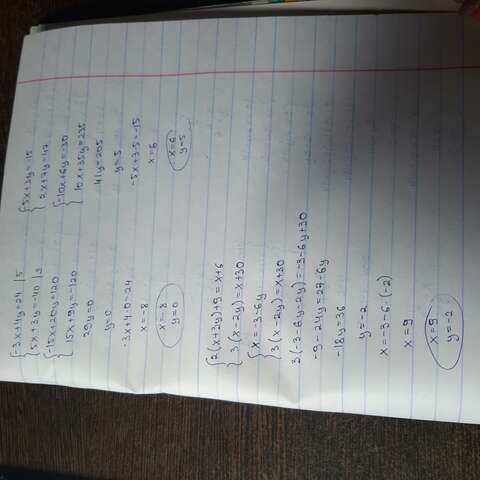 {-3x+4y=24 |5
{5x+3y=-40 |3
{-15x+20y=120
{15x+9y=-120
29y=0
y=0
-3x+4·0=24
x=-8
x=-8
y=0
{5x+3y=-15
{2x+7y=47
{-10x+6y=-30
{10x+35y=235
41y=205
y=5
-5x+3·5=-15
x=6
x=6
y=5
{2(x+3y)+9=x+6
{3·(x-2y)=x+30
{x=-3-6y
{3·(x-2y)=x+30
3·(-3-6y-2y)=-3-6y+30
-9-24y=27-6y
-18y=36
y=-2
x=-3-6·(-2)
x=9
x=9
y=-2